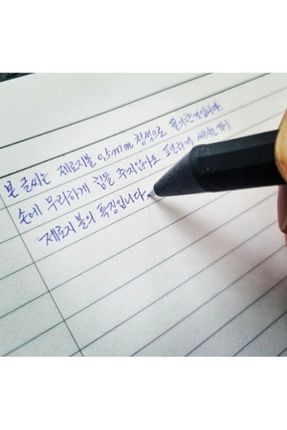 본 글씨는 제로지볼 0.5mm 청색으로 필기한것입니다.
손에 무리하게 힘을 주지않아도 편하게 써지는것이
제로지볼의 특징입니다.